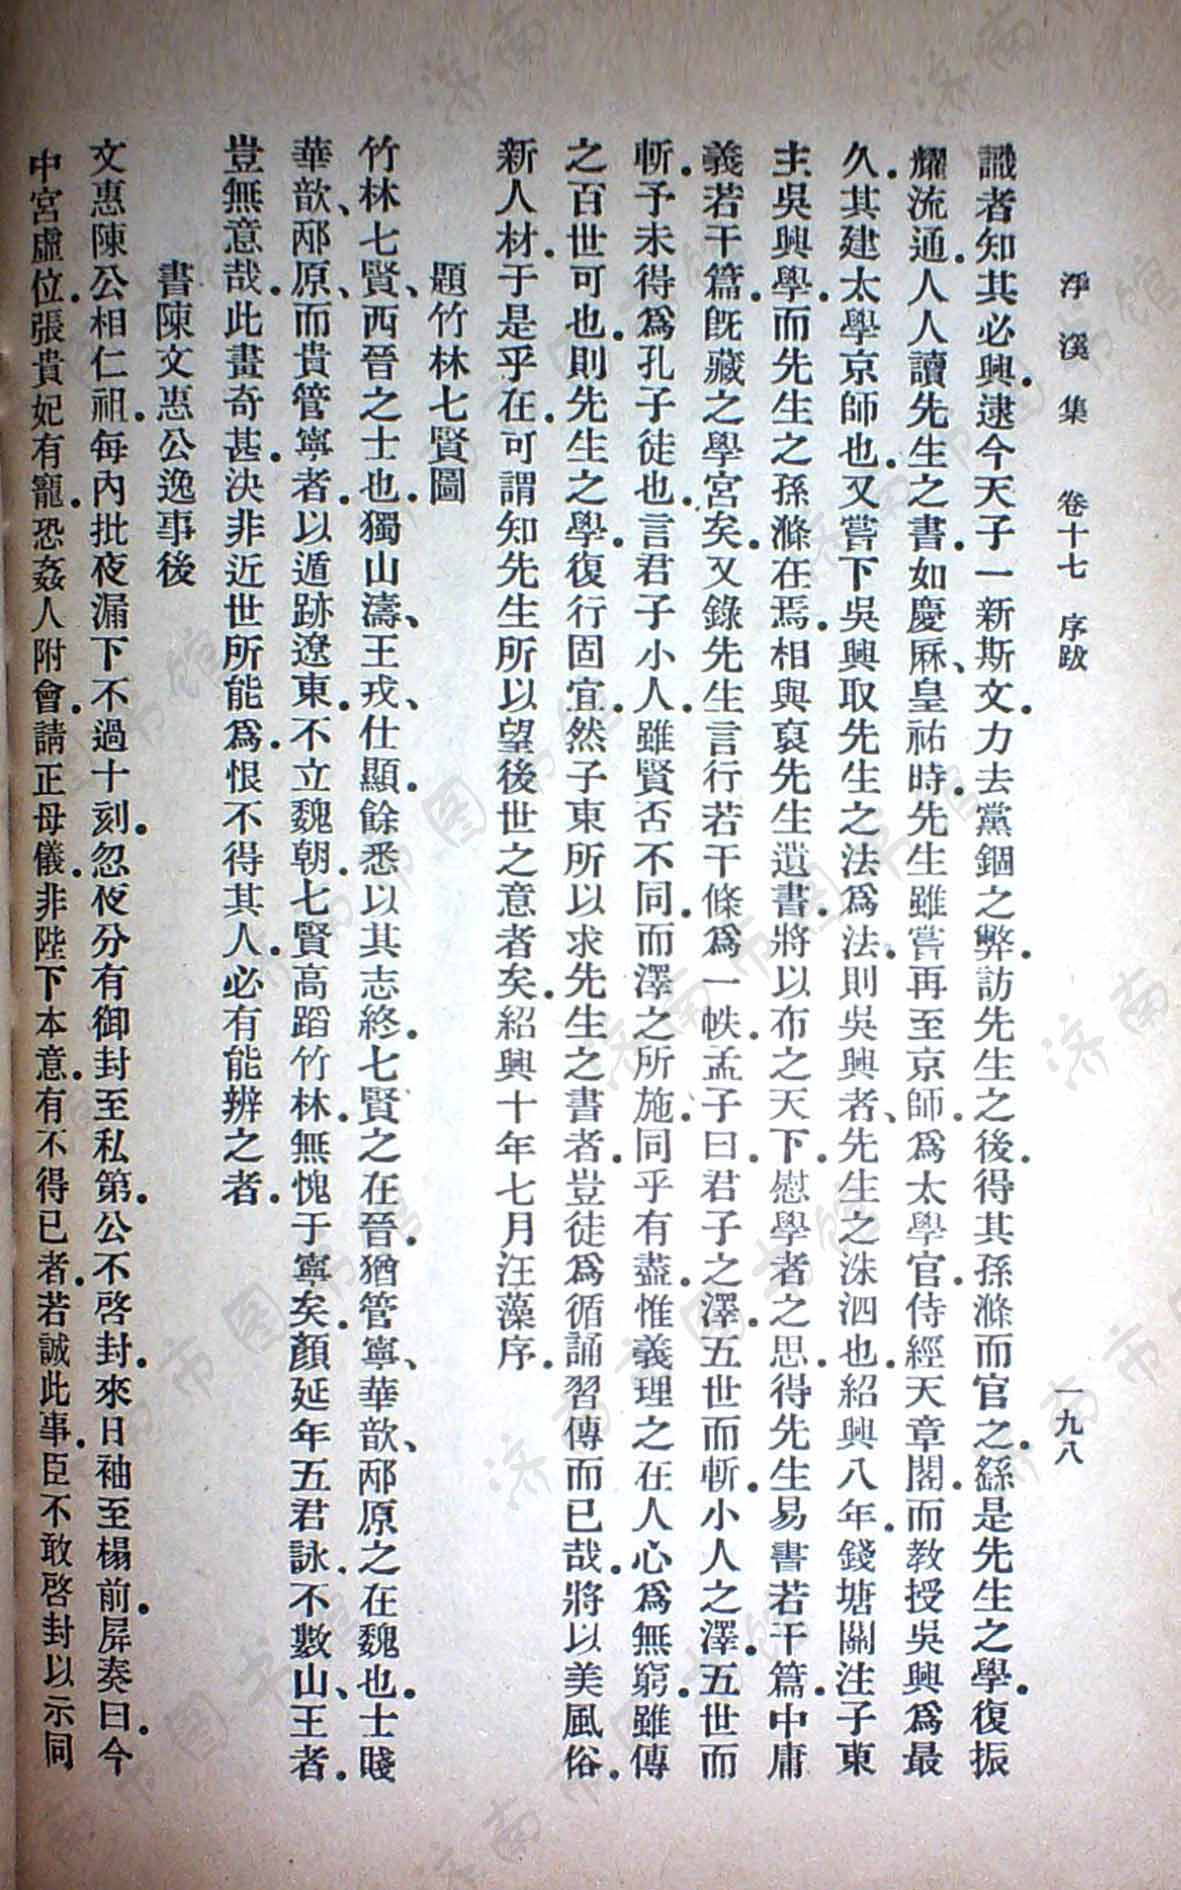 浮溪集　卷十七　序跋　一九八
識者知其必興。逮今天子一新斯文。力去黨錮之弊。訪先生之後。得其孫滌而官之。繇是先生之學。復振
耀流通。人人讀先生之書。如慶厤、皇祐時。先生雖嘗再至京師。爲太學官。侍經天章閣。而教授吳興爲最
久。其建太學京師也。又嘗下吳興取先生之法爲法。則吳興者、先生之洙泗也。紹興八年。錢塘關注子東
主吳興學。而先生之孫滌在焉。相與裒先生遺書。將以布之天下。慰學者之思。得先生易書若干篇。中庸
義若干篇。旣藏之學宮矣。又錄先生言行若干條爲一帙。孟子曰。君子之澤。五世而斬。小人之澤。五世而
斬。予未得爲孔子徒也。言君子小人。雖賢否不同。而澤之所施。同乎有盡。惟義理之在人心爲無窮。雖傳
之百世可也。則先生之學。復行固宜。然子東所以求先生之書者。豈徒爲循誦習傳而已哉。將以美風俗。
新人材。于是乎在。可謂知先生所以望後世之意者矣。紹興十年七月汪藻序。
題竹林七賢圖
竹林七賢、西晉之士也。獨山濤、王戎、仕顯。餘悉以其志終。七賢之在晉。猶管寧、華歆、邴原之在魏也。士賤
華歆、邴原、而貴管寧者。以遁跡遼東。不立魏朝。七賢高蹈竹林。無愧于寧矣。顏延年五君詠。不數山、王者。
豈無意哉。此畫奇甚。決非近世所能爲。恨不得其人。必有能辨之者。
書陳文惠公逸事後
文惠陳公相仁祖。每內批夜漏下不過十刻。忽夜分有御封至私第。公不啓封。來日袖至榻前。屏奏曰。今
中宮虛位。張貴妃有寵。恐姦人附會。請正母儀。非陛下本意。有不得已者。若誠此事。臣不敢啓封以示同